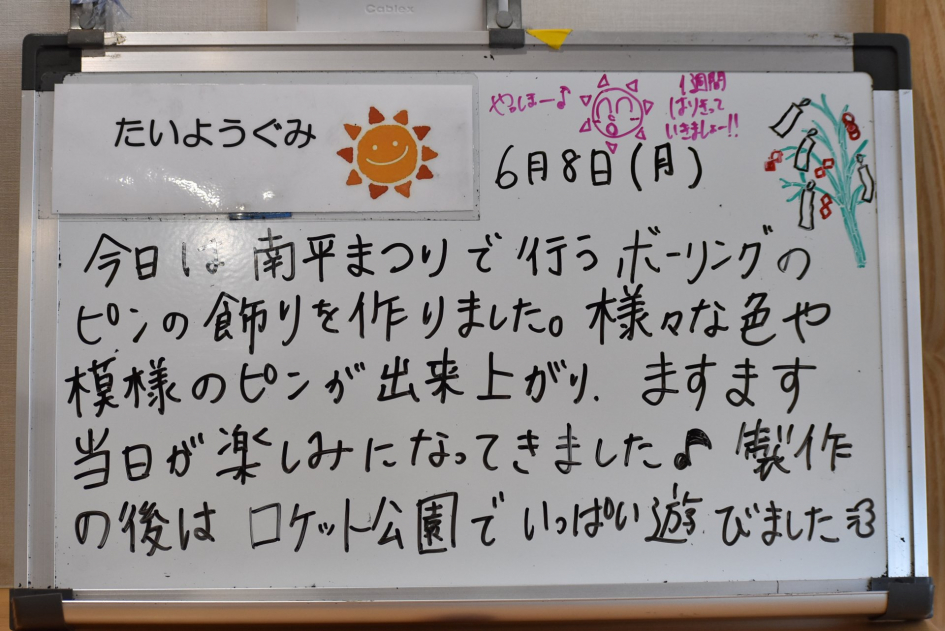 Cablox
たいようぐみ
やっほー♪
1週間
はりきって
いきましょー!!
6月8日(月)
今日は南平まつりで行うボーリングの
ピンの飾りを作りました。様々な色や
模様のピンが出来上がり、ますます
当日が楽しみになってきました♪製作
の後はロケット公園でいっぱい遊びました